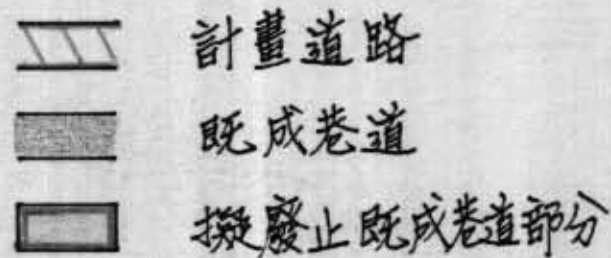 計畫道路
既成巷道
擬廢止既成巷道部分